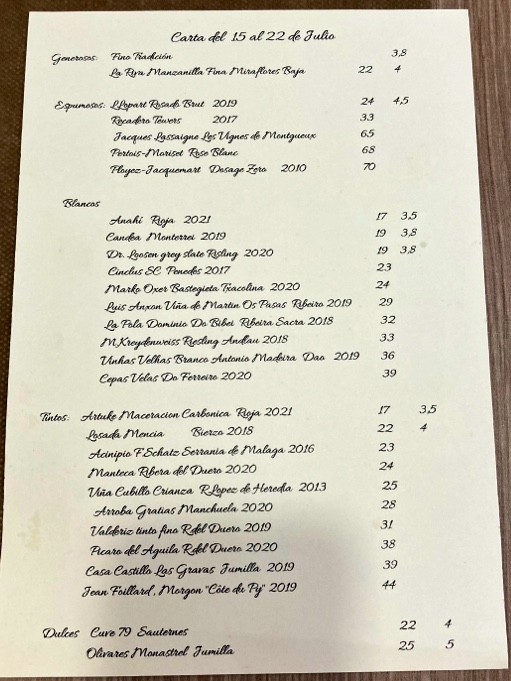 Carta del 15 al 22 de Julio
Generosos: Fino Tradición 3,8
La Riva Manzanilla Fina Miraflores Baja 22 4
Espumosos: LLopart Rosado Brut 2019 24 4,5
Recadero Tewers 2017 33
Jacques Lassaigne Les Vignes de Montgueux 65
Pertois-Moriset Rose Blanc 68
Ployez-Jacquemart Dosage Zero 2010 70
Blancos
Anahi Rioja 2021 17 3,5
Candea Monterrei 2019 19 3,8
Dr. Loosen grey slate Risling 2020 19 3,8
Cinclus SC Penedes 2017 23
Marko Oxer Bastegieta Txacolina 2020 24
Luis Anxon Viña de Martin Os Pasas Ribeiro 2019 29
La Pola Dominio Do Bibei Ribeira Sacra 2018 32
M.Kreydenweiss Riesling Andlau 2018 33
Vinhas Velhas Branco Antonio Madeira Dao 2019 36
Cepas Velas Do Ferreiro 2020 39
Tintos: Artuke Maceracion Carbonica Rioja 2021 17 3,5
Losada Mencia Bierzo 2018 22 4
Acinipio F.Schatz Serrania de Malaga 2016 23
Manteca Ribera del Duero 2020 24
Viña Cubillo Crianza R.Lopez de Heredia 2013 25
Arroba Gratias Manchuela 2020 28
Valderiz tinto fino R.del Duero 2019 31
Picaro del Aguila R.del Duero 2020 38
Casa Castillo Las Gravas Jumilla 2019 39
Jean Foillard, Morgon "Côte du Py" 2019 44
Dulces Cuve 79 Sauternes 22 4
Olivares Monastrel Jumilla 25 5